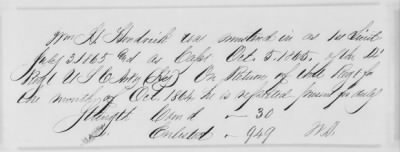 Wm H. Hendrick was mustered in as 1st Lieut
July 3 1865 and as Capt Oct. 5. 1865. of the 12
Regt U S C Arty (Hvy) On Return of this Regt for
the month of Oct. 1864 he is reported present for duty
Strength Com'd - 30
Enlisted - 949